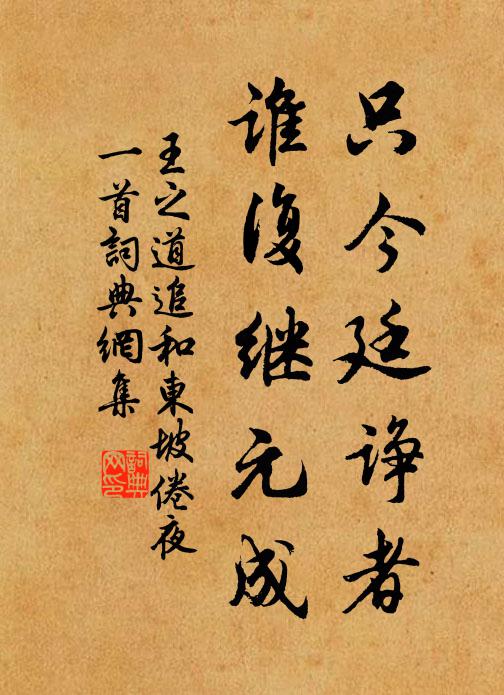 只今廷诤者
谁复继元成
王之道追和東坡倦夜
一首詞典網集
詞典网印